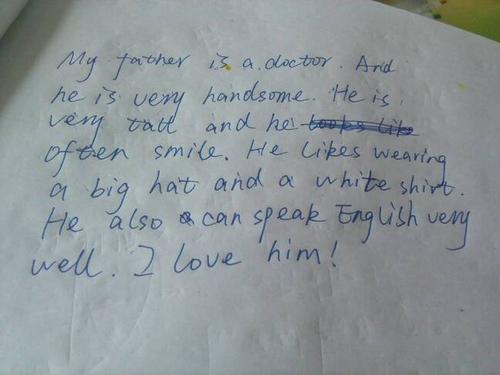 My father is a doctor. And
he is very handsome. He is
very tall and he looks like
often smile. He likes wearing
a big hat and a white shirt.
He also can speak English very
well. I love him!